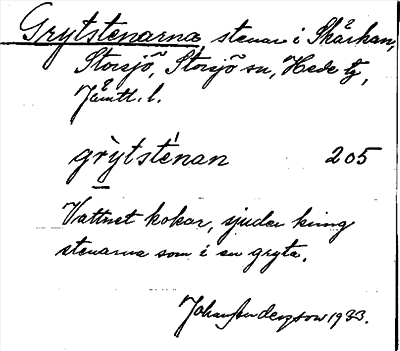 Grytstenarna, stenar i Skårhan,
Storsjö, Storsjö sn, Hede tg,
Jämtl. l.
grytsténan 205
Vattnet kokar, sjuder kring
stenarna som i en gryta.
Johan Anderzson 1933.